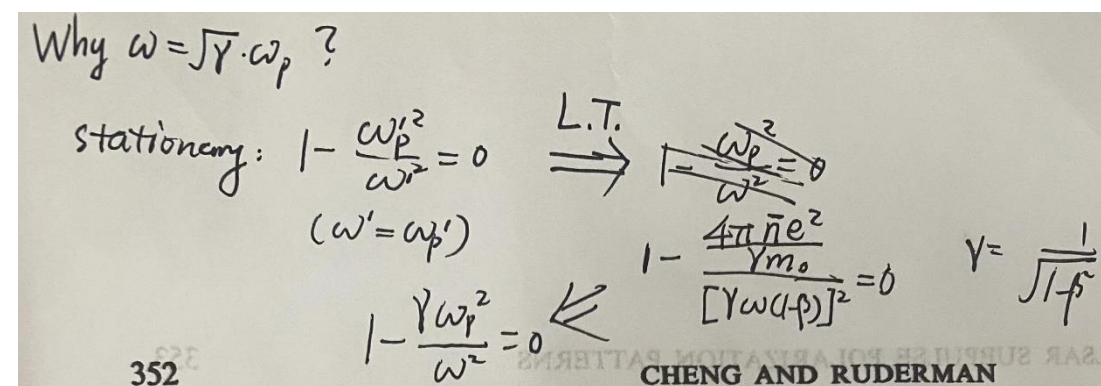 Why ω = √γ · ωp ?
stationary: 1 - ωp'² / ω'² = 0 ⟹ L.T. 1 - ωp² / ω² = 0
(ω' = ωp') 1 - (4π n̄ e² / γ m₀) / [γω(1-β)]² = 0 γ = 1 / √(1-β²)
1 - γωp² / ω² = 0 ⇐
352 CHENG AND RUDERMAN